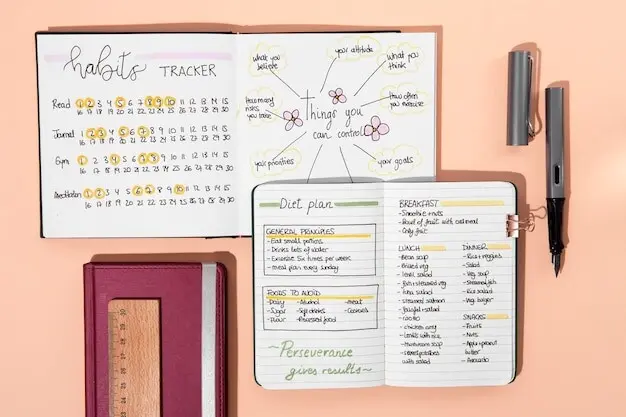 habits TRACKER
Read 1 2 3 4 5 6 7 8 9 10 11 12 13 14 15
16 17 18 19 20 21 22 23 24 25 26 27 28 29 30
Journal 1 2 3 4 5 6 7 8 9 10 11 12 13 14 15
16 17 18 19 20 21 22 23 24 25 26 27 28 29 30
Gym 1 2 3 4 5 6 7 8 9 10 11 12 13 14 15
16 17 18 19 20 21 22 23 24 25 26 27 28 29 30
Meditation 1 2 3 4 5 6 7 8 9 10 11 12 13 14 15
16 17 18 19 20 21 22 23 24 25 26 27 28 29 30
what you
believe
your attitude
What you
think
How many
risks
you take
How often
you exercise
Things you
can control
your priorities
your goals
Diet plan
GENERAL PRINCIPLES
- Eat small portions
- Drink lots of water
- Exercise six times per weeks
- meal plan every sunday
FOODS TO AVOID
- Dairy - Alcohol - Meat
- Sugar - Soft drinks - Cereals
- Flour - Processed food
~Perseverance
gives results~
BREAKFAST
- Smoothie + nuts
- Bowl of fruit with oatmeal
- Only fruit
LUNCH
- Bean soup
- Baked veg
- lentil salad
- Fish + steamed veg
- tuna salad
- steamed salmon
- chicken curry
- Lentils with rice
- Mushroom soup
with salad
DINNER
- Rice + veggies
- Salad
- Veg soup
- Steamed fish
- Rice salad
- Veg burger
SNACKS
- Fruits
- Nuts
- Apple + peanut
butter
- Avocado
30
29
28
27
26
25
24